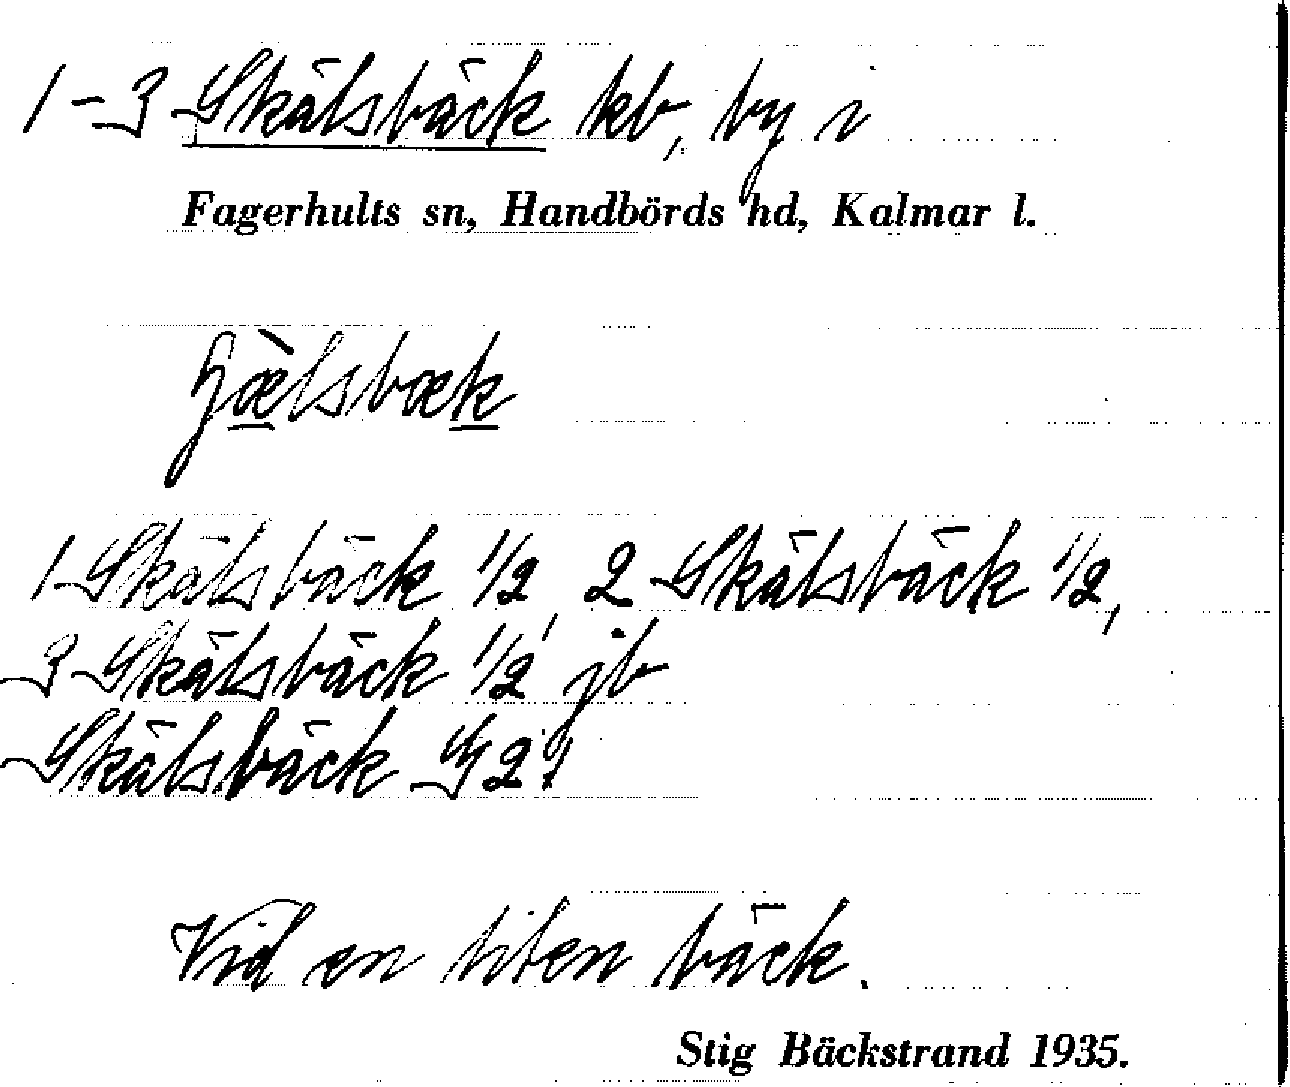 1-3 Skälsbäck kb, by i
Fagerhults sn, Handbörds hd, Kalmar l.
1 Skälsbäck 1/2, 2 Skälsbäck 1/2,
3 Skälsbäck 1/2 jb
Skälsbäck
Vid en liten bäck.
Stig Bäckstrand 1935.